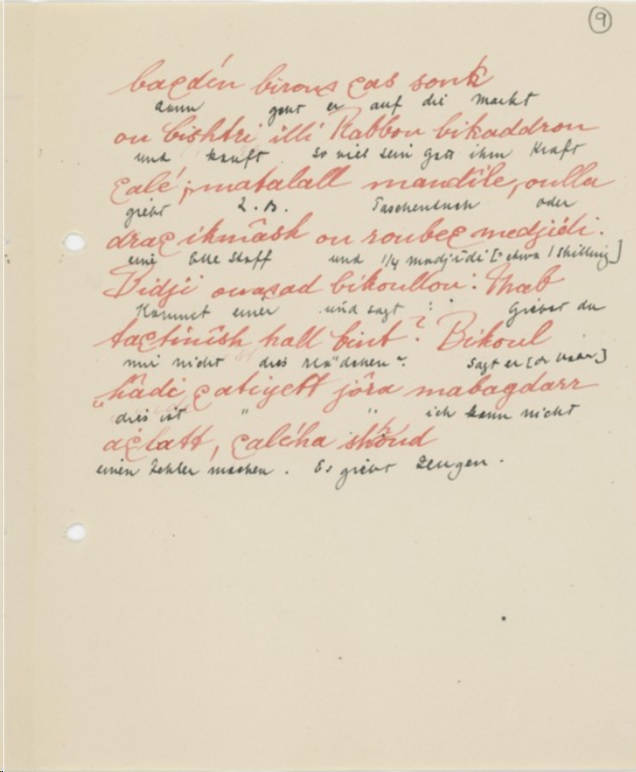 9
baɛdén birouɛ ɛas souk
dann geht er auf die Markt
ou bishtri illi Rabbou bikaddrou
und kauft so viel sein Gott ihm Kraft
ɛalé; matalall mandîle, oulla
giebt z.B. Taschentuch oder
draɛ ikmâsh ou roubeɛ medjidi.
eine Elle Stoff und 1/4 madjidi [= etwa 1 shilling]
Vidji ouaɛad bikoullou: Mab
Kommt einer und sagt : Giebst du
taɛtinîsh hall bint? Bikoul
mir nicht dies Mädchen? sagt er [der Vater]
"hâdi ɛatiyett jôra mabagdarr
dies ist " " ich kann nicht
aɛlatt, ɛaléha shhoud
einen Fehler machen. Es giebt Zeugen.